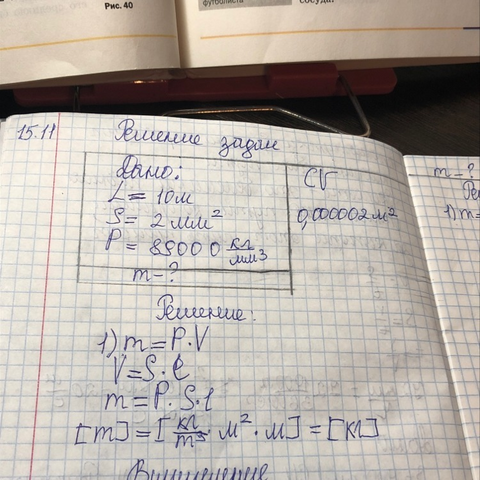 Рис. 40
футболиста
15.11 Решение задач
Дано:
L = 10м
S = 2 мм²
P = 89000 кг/мм3
m - ?
СИ
0,000002 м²
Решение:
1) m = P · V
V = S · l
m = P · S · l
[m] = [кг/m³ · м² · м] = [кг]
m - ?
1) m =